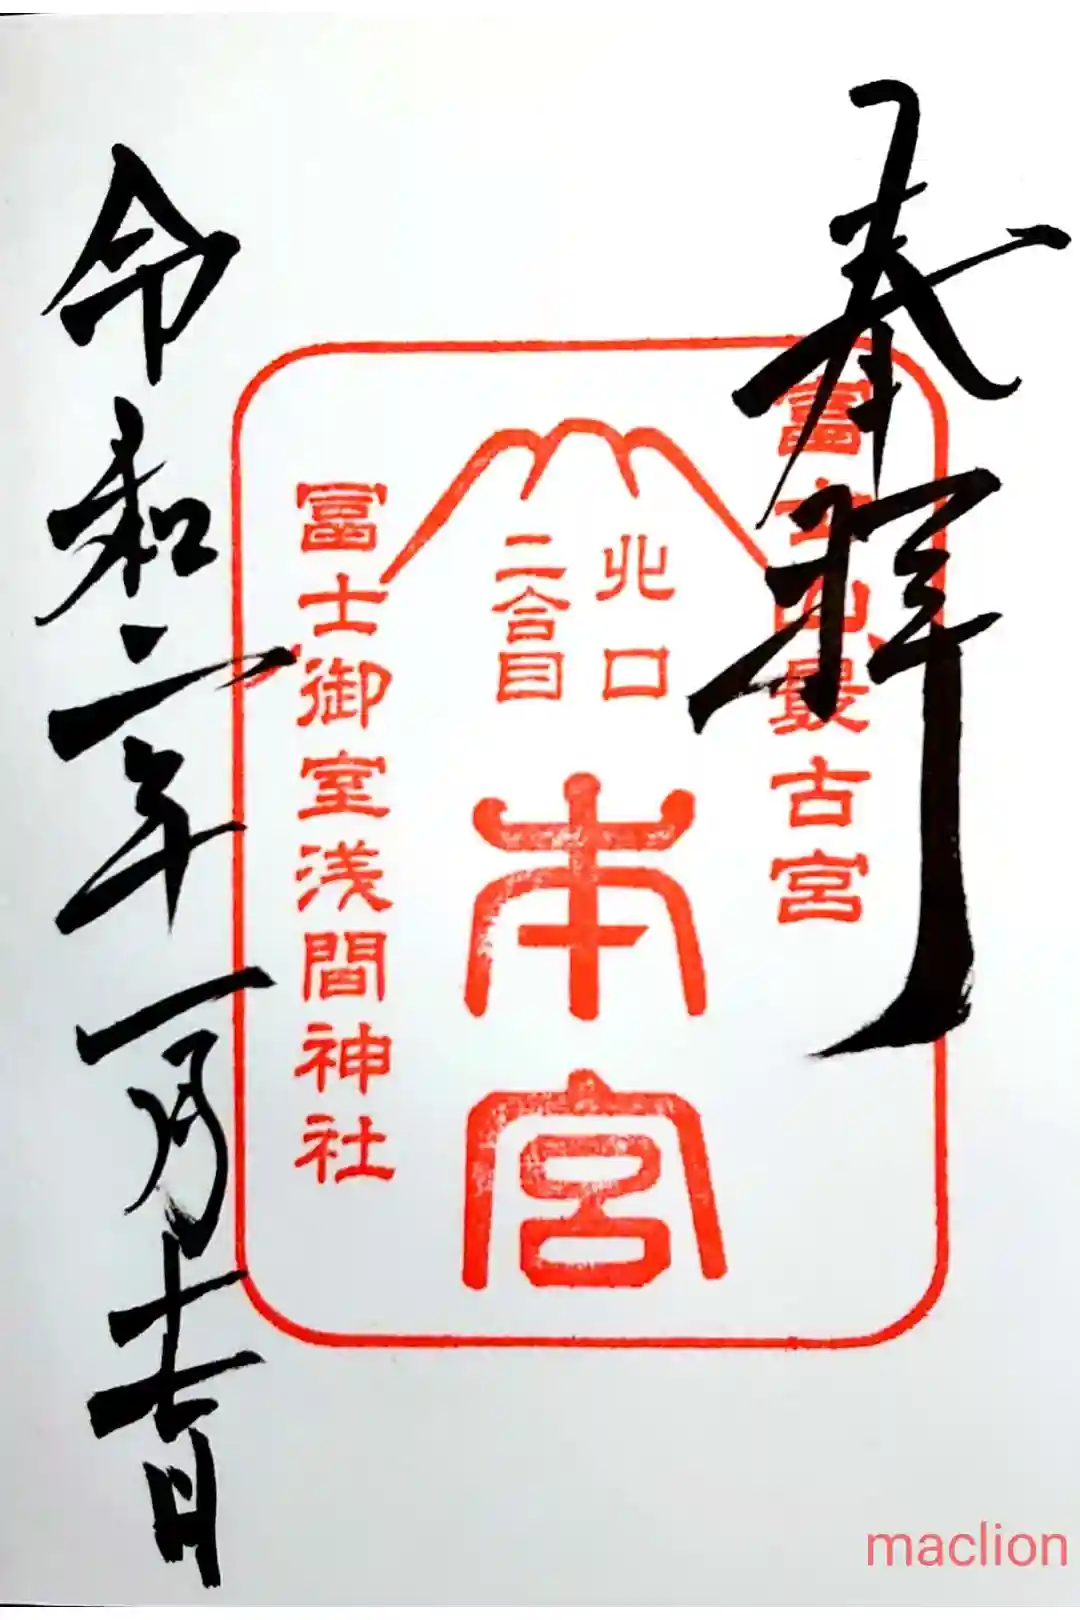 奉拝
富士山最古宮
北口
二合目
本宮
富士御室浅間神社
令和二年一月十七日
maclion